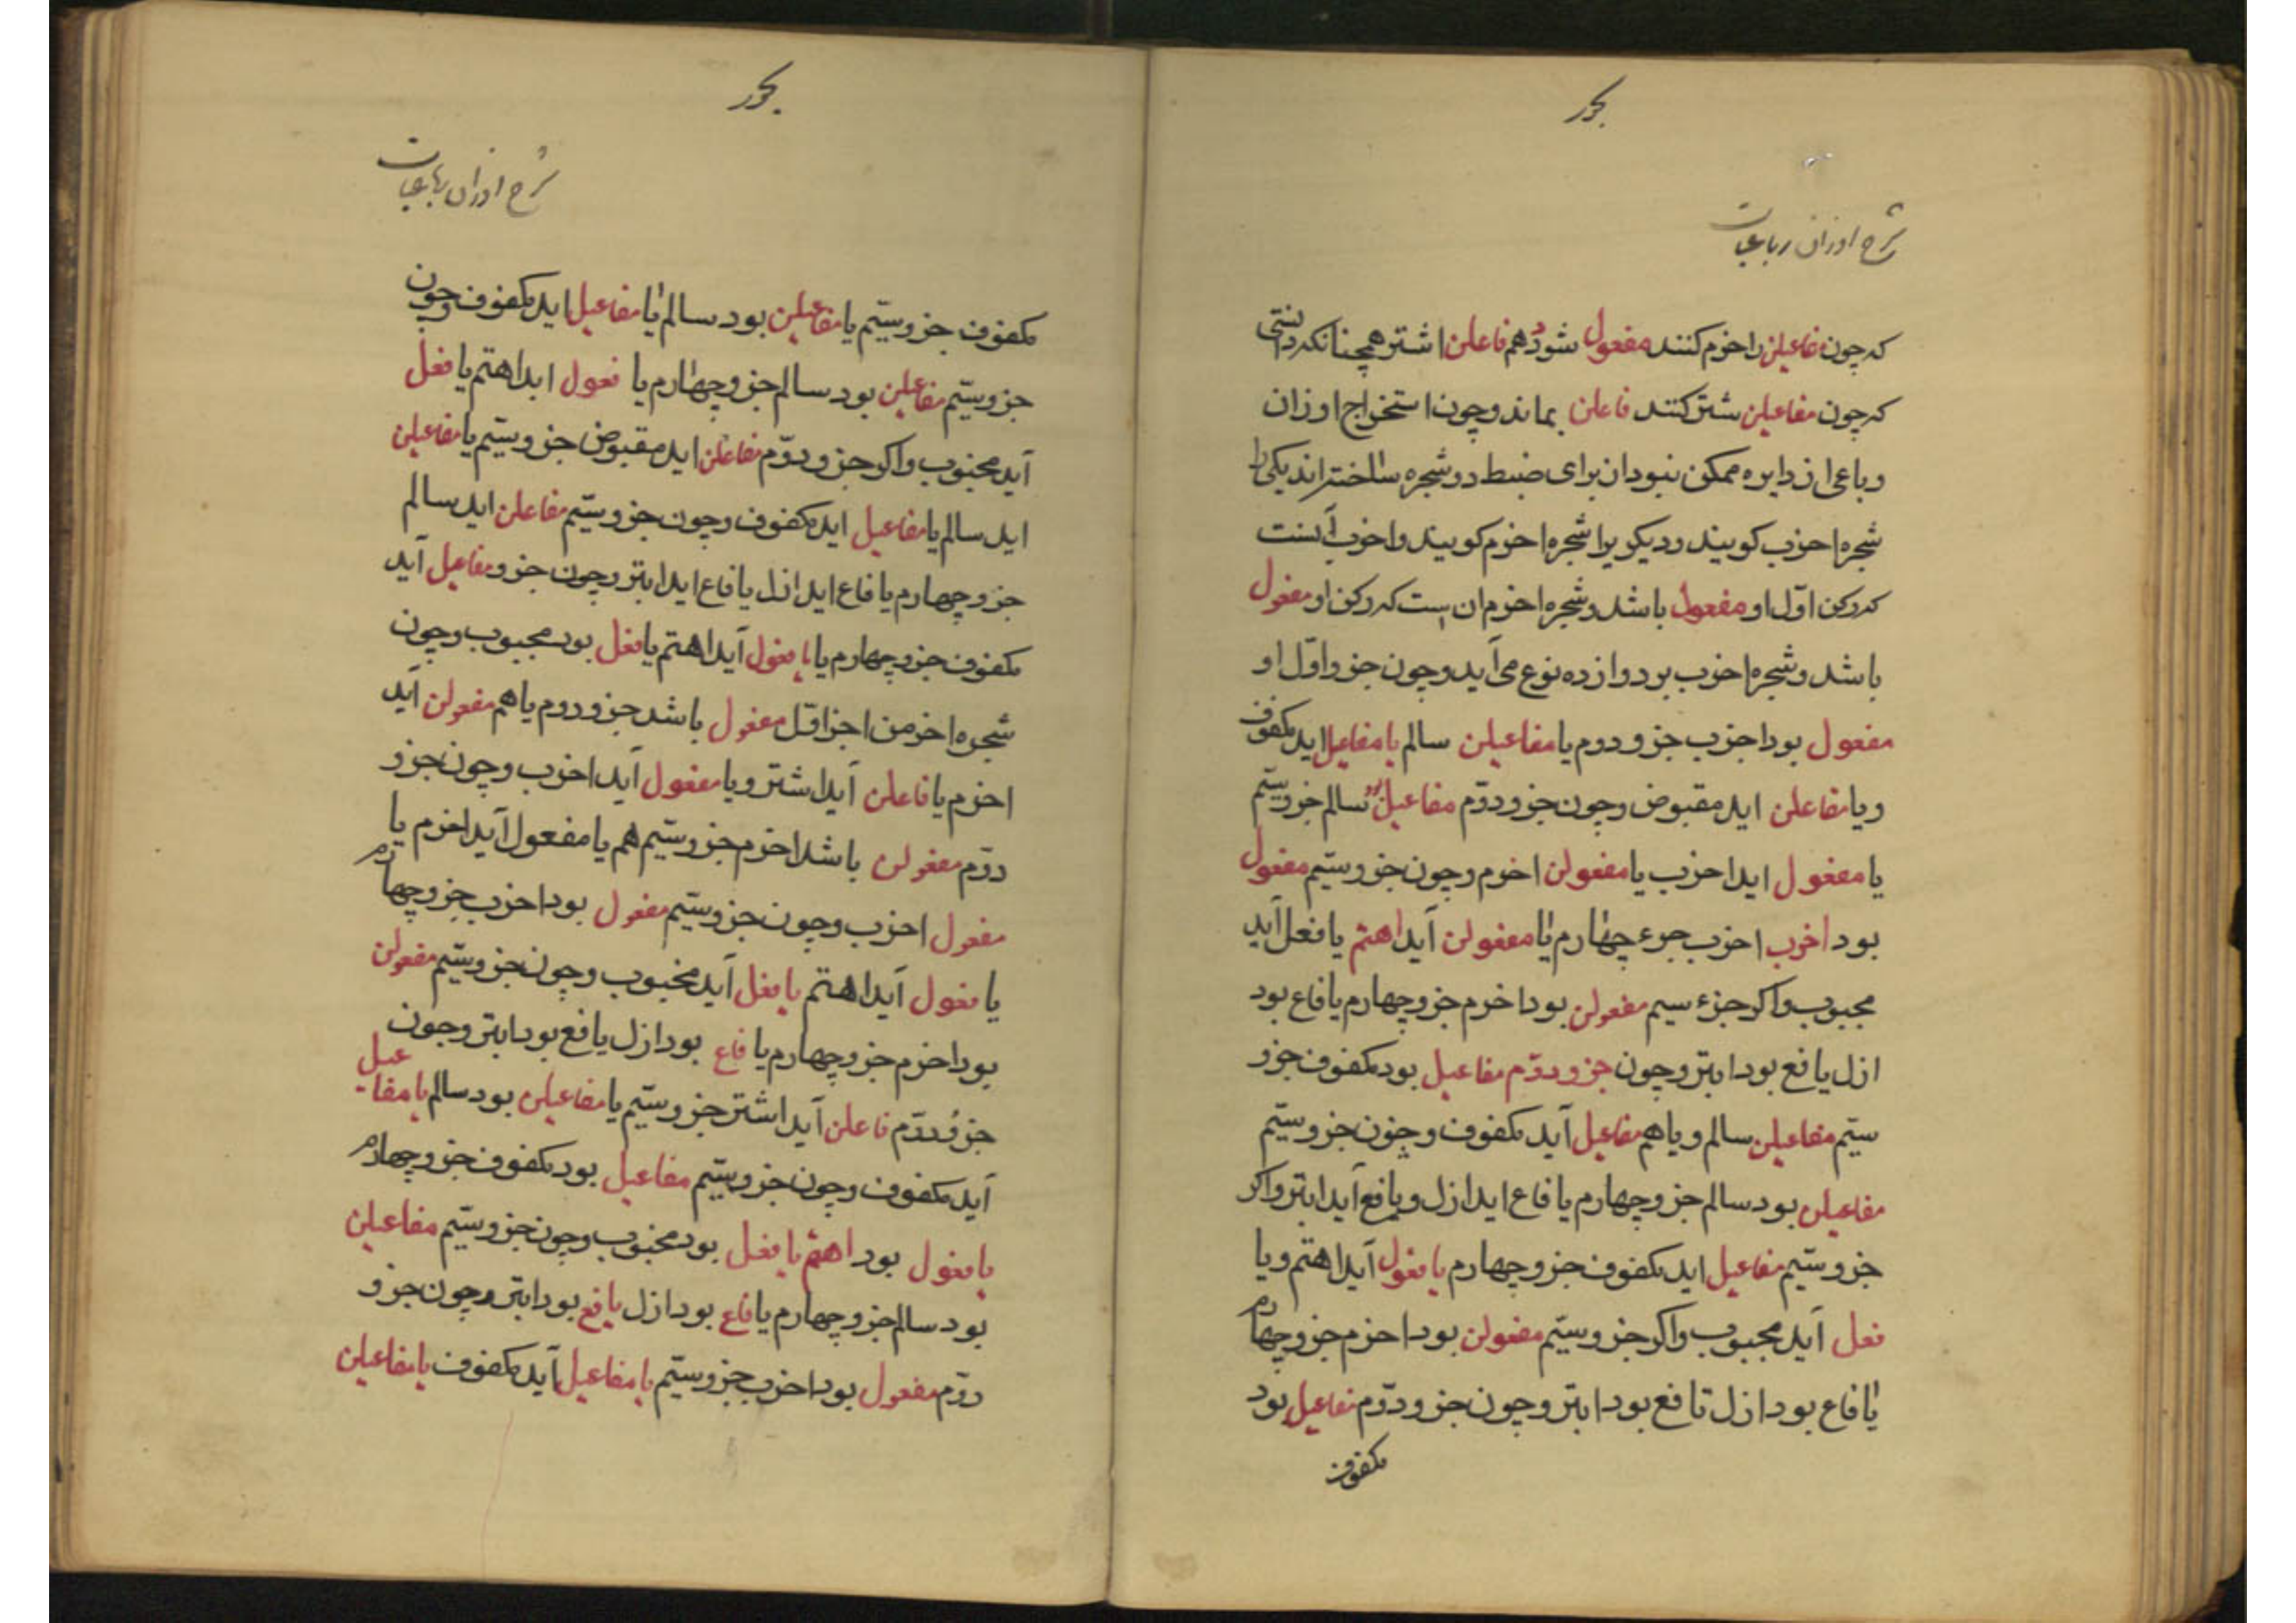 بحور
شرح اوزان رباعیات
که چون مفاعیلن را اخرم کنند مفعول شود هم فاعلن اشتر همچنانکه دانستی
که چون مفاعیلن شتر کنند فاعلن بماند و چون استخراج اوزان
رباعی از دایره ممکن نبود ان برای ضبط دو شجره ساختهاند یکی را
شجره اخرب کویند و دیکریرا شجره اخرم کویند و اخرب آنست
که رکن اوّل او مفعول باشد و شجره اخرم ان است که رکن او مفعول
باشد و شجره اخرب بر دوازده نوع می آید و چون جزو اوّل او
مفعول بود اخرب جزو دوم یا مفاعیلن سالم یا مفاعیل اید مکفوف
و یا مفاعلن اید مقبوض و چون جزو دوّم مفاعیلن سالم جزو سیّم
یا مفعول اید اخرب یا مفعولن اخرم و چون جزو سیّم مفعول
بود اخرب اخرب جزء چهارم یا مفعولن آید اهتم یا فعل آید
مجبوب و اکر جزء سیم مفعولن بود اخرم جزو چهارم یا فاع بود
ازل یا فع بود ابتر و چون جزو دوّم مفاعیل بود مکفوف جزو
سیّم مفاعیلن سالم و یا هم مفاعیل آید مکفوف و چون جزو سیّم
مفاعیلن بود سالم جزو چهارم یا فاع اید ازل و یا فع آید ابتر و اکر
جزو سیّم مفاعیل اید مکفوف جزو چهارم یا فعول آید اهتم و یا
فعل آید مجبوب و اکر جزو سیّم مفعولن بود اخرم جزو چهارم
یا فاع بود ازل تا فع بود ابتر و چون جزو دوّم مفاعیل بود
مکفوف
بحور
شرح اوزان رباعیات
مکفوف جزو سیّم یا مفاعیلن بود سالم یا مفاعیل اید مکفوف و چون
جزو سیّم مفاعیلن بود سالم جزو چهارم یا فعول اید اهتم یا فعل
آید مجبوب و اکر جزو دوّم مفاعلن اید مقبوض جزو سیّم یا مفاعیلن
اید سالم یا مفاعیل اید مکفوف و چون جزو سیّم مفاعلن اید سالم
جزو چهارم یا فاع اید ازل یا فاع اید ابتر و چون جزو مفاعیل آید
مکفوف جزو چهارم یا یا فعول آید اهتم یا فعل بود مجبوب و چون
شجره اخرمن اجزا وّل مفعول باشد جزو دوم یا هم مفعولن آید
اخرم یا فاعلن آید اشتر و یا مفعول آید اخرب و چون جزو
دوّم مفعولن باشد اخرم جزو سیّم هم یا مفعول آید اخرم یا
مفعول اخرب و چون جزو سیّم مفعول بود اخرب جزو چهارم
یا فعول آید اهتم یا فعل آید مجبوب و چون جزو سیّم مفعولن
بود اخرم جزو چهارم یا فاع بود ازل یا فع بود ابتر و چون
جزو دوّم فاعلن آید اشتر جزو سیّم یا مفاعیلن بود سالم یا مفاعیل
آید مکفوف و چون جزو سیّم مفاعیل بود مکفوف جزو چهارم
یا فعول بود اهتم یا فعل بود مجبوب و چون جزو سیّم مفاعیلن
بود سالم جزو چهارم یا فاع بود ازل یا فع بود ابتر و چون جزو
دوّم مفعول بود اخرب جزو سیّم یا مفاعیل آید مکفوف یا مفاعیلن